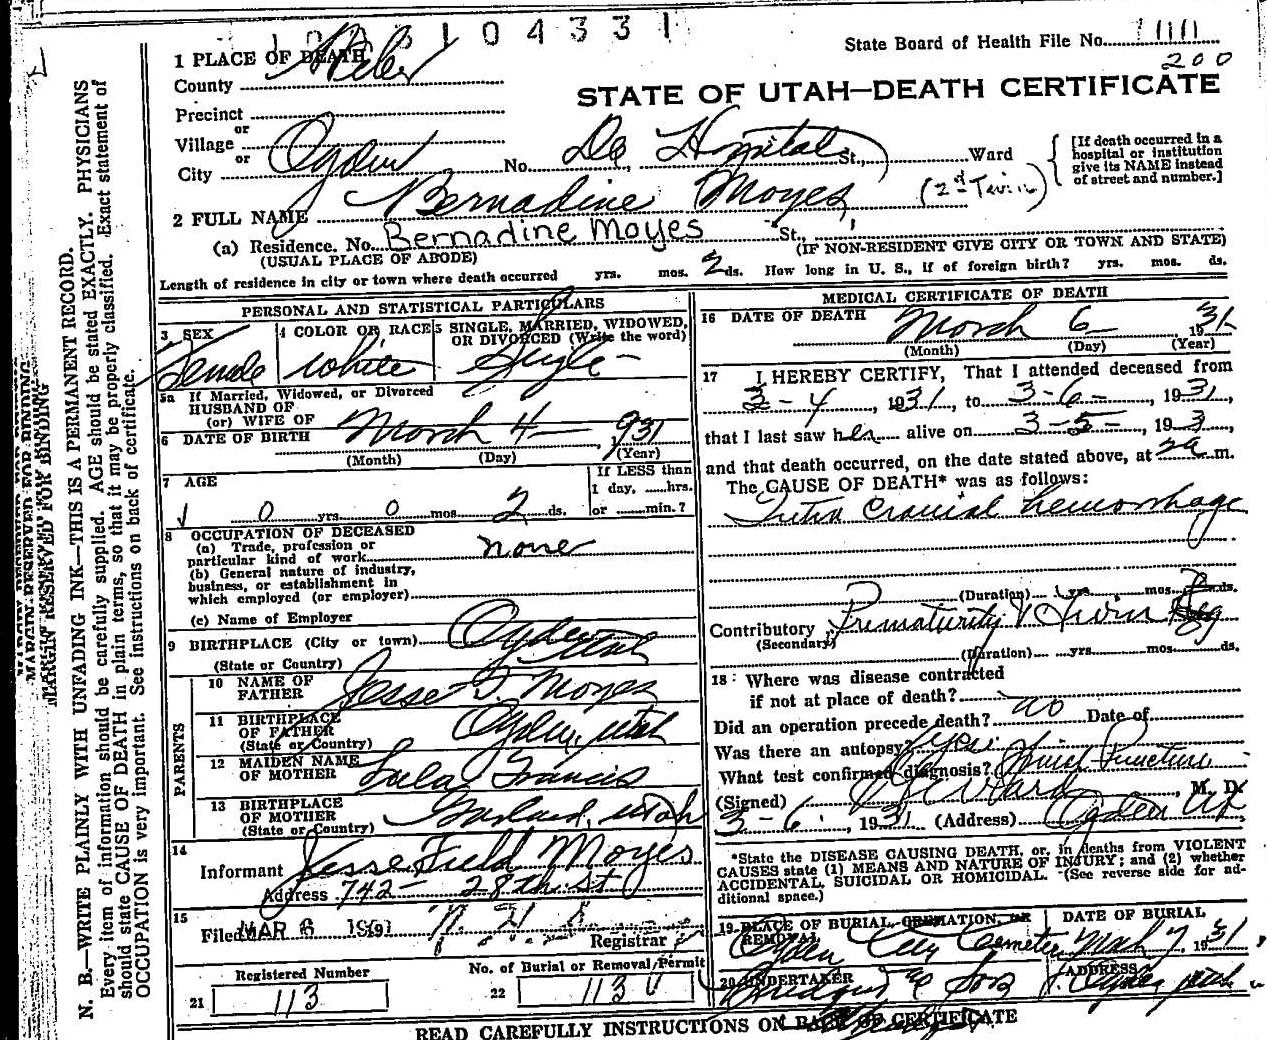 104331
State Board of Health File No. 11111
200
1 PLACE OF DEATH
County Weber
STATE OF UTAH—DEATH CERTIFICATE
Precinct
or
Village
or
City Ogden No. Dee Hospital St., Ward
[If death occurred in a hospital or institution give its NAME instead of street and number.]
2 FULL NAME Bernadine Moyes (2nd Twin)
(a) Residence. No. Bernadine Moyes St.,
(USUAL PLACE OF ABODE) (IF NON-RESIDENT GIVE CITY OR TOWN AND STATE)
Length of residence in city or town where death occurred yrs. mos. 2 ds. How long in U. S., if of foreign birth? yrs. mos. ds.
PERSONAL AND STATISTICAL PARTICULARS
3 SEX Female
4 COLOR OR RACE White
5 SINGLE, MARRIED, WIDOWED, OR DIVORCED (Write the word) Single
5a If Married, Widowed, or Divorced
HUSBAND OF
(or) WIFE OF
6 DATE OF BIRTH March 4 1931
(Month) (Day) (Year)
7 AGE
0 yrs. 0 mos. 2 ds.
If LESS than 1 day, hrs. or min.?
8 OCCUPATION OF DECEASED
(a) Trade, profession or particular kind of work none
(b) General nature of industry, business, or establishment in which employed (or employer)
(c) Name of Employer
9 BIRTHPLACE (City or town) Ogden
(State or Country) Utah
PARENTS
10 NAME OF FATHER Jesse F. Moyes
11 BIRTHPLACE OF FATHER (State or Country) Ogden, Utah
12 MAIDEN NAME OF MOTHER Lula Francis
13 BIRTHPLACE OF MOTHER (State or Country) Garland, Utah
14
Informant Jesse Field Moyes
Address 742 - 28th St
15
Filed MAR 6 1931 Registrar
Registered Number
21 113
No. of Burial or Removal Permit
22 113
MEDICAL CERTIFICATE OF DEATH
16 DATE OF DEATH March 6 1931
(Month) (Day) (Year)
17 I HEREBY CERTIFY, That I attended deceased from
3-4, 1931, to 3-6-, 1931,
that I last saw her alive on 3-5-, 193,
and that death occurred, on the date stated above, at 2a m.
The CAUSE OF DEATH* was as follows:
Intra Cranial hemorrhage
(Duration) yrs. mos. 2 ds.
Contributory Prematurity & Twin Preg
(Secondary)
(Duration) yrs. mos. ds.
18 Where was disease contracted
if not at place of death?
Did an operation precede death? no Date of
Was there an autopsy? yes
What test confirmed diagnosis? Spinal Puncture
(Signed) Ward, M. D.
3-6, 1931 (Address) Ogden Ut
*State the DISEASE CAUSING DEATH, or, in deaths from VIOLENT
CAUSES state (1) MEANS AND NATURE OF INJURY; and (2) whether
ACCIDENTAL, SUICIDAL OR HOMICIDAL. (See reverse side for additional space.)
19 PLACE OF BURIAL, CREMATION, OR REMOVAL Ogden City Cemetery
DATE OF BURIAL March 7, 1931
20 UNDERTAKER & Sons
ADDRESS Ogden Utah
READ CAREFULLY INSTRUCTIONS ON BACK OF CERTIFICATE
MARGIN RESERVED FOR BINDING
N. B.—WRITE PLAINLY WITH UNFADING INK—THIS IS A PERMANENT RECORD.
Every item of information should be carefully supplied. AGE should be stated EXACTLY. PHYSICIANS
should state CAUSE OF DEATH in plain terms, so that it may be properly classified. Exact statement of
OCCUPATION is very important. See instructions on back of certificate.